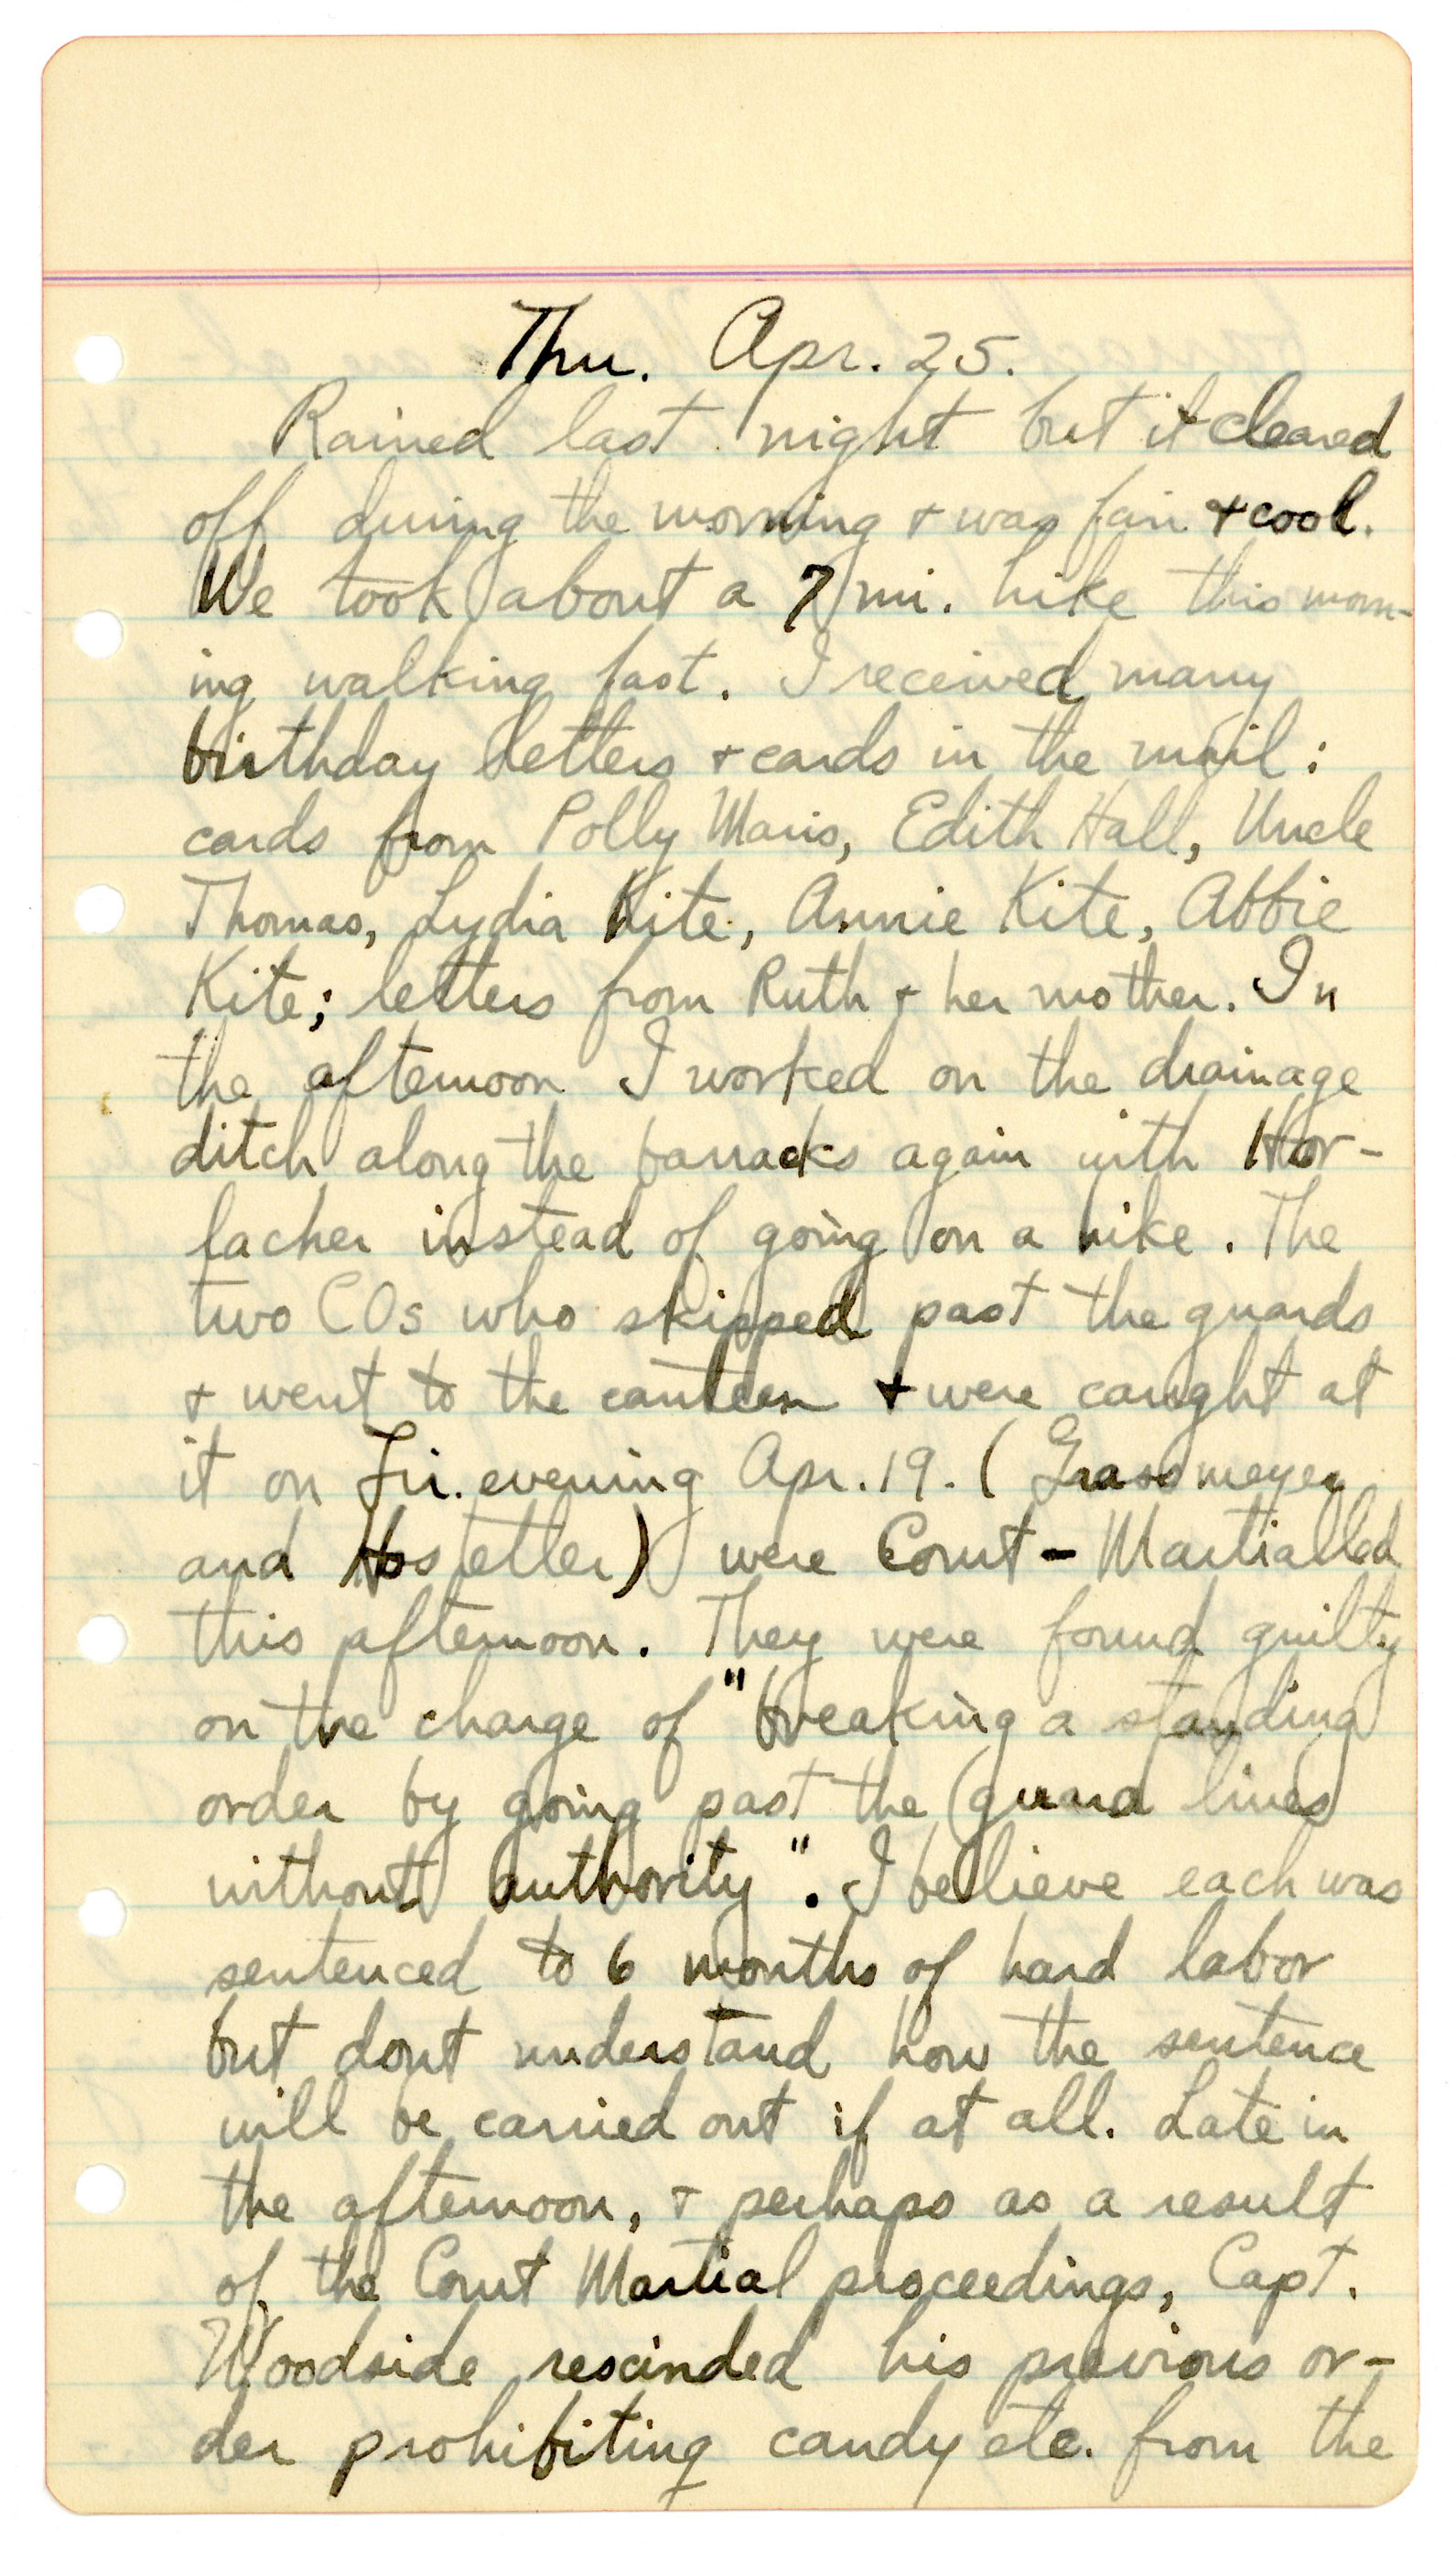 Thu. Apr. 25.
Rained last night but it cleared
off during the morning + was fair + cool.
We took about a 7 mi. hike this morn-
ing walking fast. I received many
birthday letters + cards in the mail:
cards from Polly Maris, Edith Hall, Uncle
Thomas, Lydia Kite, Annie Kite, Abbie
Kite; letters from Ruth + her mother. In
the afternoon I worked on the drainage
ditch along the barracks again with Hor-
lacher instead of going on a hike. The
two COs who skipped past the guards
+ went to the canteen + were caught at
it on Fri. evening Apr. 19. (Grassmeyer
and Hostetler) were Court-Martialled
this afternoon. They were found guilty
on the charge of "breaking a standing
order by going past the guard lines
without authority". I believe each was
sentenced to 6 months of hard labor
but dont understand how the sentence
will be carried out if at all. Late in
the afternoon, + perhaps as a result
of the Court Martial proceedings, Capt.
Woodside rescinded his previous or-
der prohibiting candy etc. from the